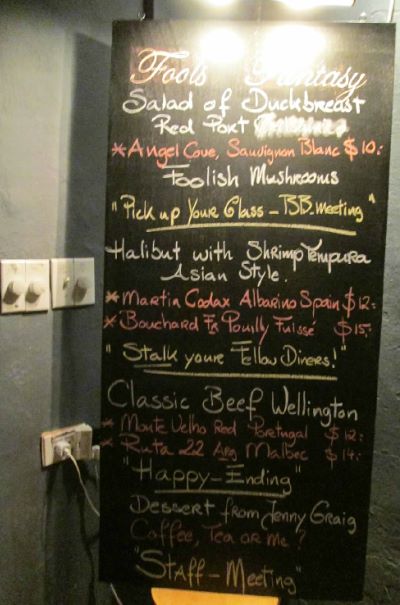 Fools Fantasy
Salad of Duckbreast
Red Port
*Angel Cove, Sauvignon Blanc $10.-
Foolish Mushrooms
"Pick up Your Glass - BB. meeting"
Halibut with Shrimp Tempura
Asian Style.
*Martin Codax Albarino Spain $12.-
*Bouchard Fr Pouilly Fuissé $15.-
"Stalk youre Fellow Diners!"
Classic Beef Wellington
*Monte Velho Red Portugal $12.-
*Ruta 22 Arg Malbec $14.-
"Happy-Ending"
Dessert from Jenny Graig
Coffee, Tea or Me?
"Staff-Meeting"